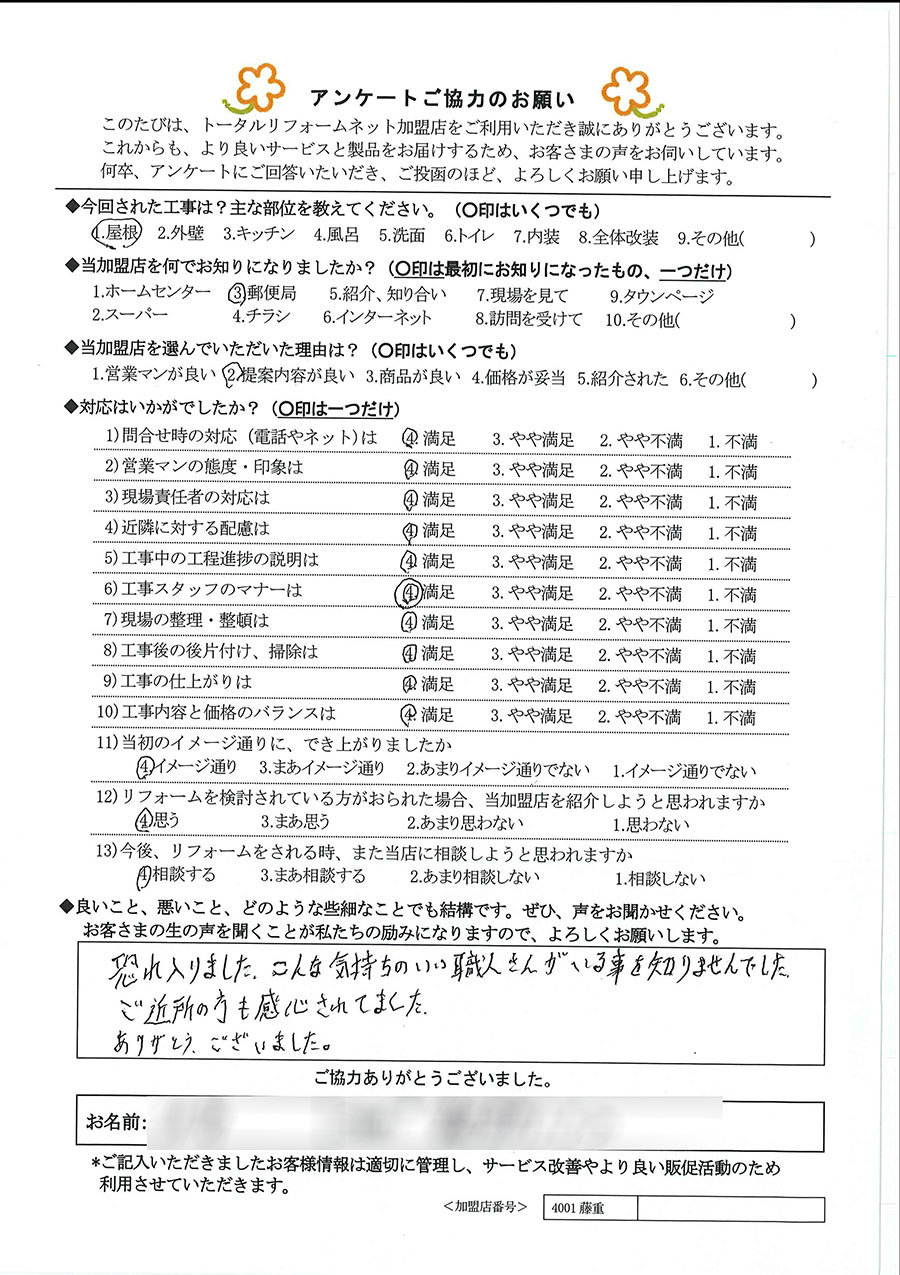 アンケートご協力のお願い
このたびは、トータルリフォームネット加盟店をご利用いただき誠にありがとうございます。
これからも、より良いサービスと製品をお届けするため、お客さまの声をお伺いしています。
何卒、アンケートにご回答いたいだき、ご投函のほど、よろしくお願い申し上げます。
◆今回された工事は？主な部位を教えてください。（〇印はいくつでも）
1.屋根 2.外壁 3.キッチン 4.風呂 5.洗面 6.トイレ 7.内装 8.全体改装 9.その他( )
◆当加盟店を何でお知りになりましたか？（〇印は最初にお知りになったもの、一つだけ）
1.ホームセンター 3.郵便局 5.紹介、知り合い 7.現場を見て 9.タウンページ
2.スーパー 4.チラシ 6.インターネット 8.訪問を受けて 10.その他( )
◆当加盟店を選んでいただいた理由は？（〇印はいくつでも）
1.営業マンが良い 2.提案内容が良い 3.商品が良い 4.価格が妥当 5.紹介された 6.その他( )
◆対応はいかがでしたか？（〇印は一つだけ）
1)問合せ時の対応（電話やネット)は 4.満足 3.やや満足 2.やや不満 1.不満
2)営業マンの態度・印象は 4.満足 3.やや満足 2.やや不満 1.不満
3)現場責任者の対応は 4.満足 3.やや満足 2.やや不満 1.不満
4)近隣に対する配慮は 4.満足 3.やや満足 2.やや不満 1.不満
5)工事中の工程進捗の説明は 4.満足 3.やや満足 2.やや不満 1.不満
6)工事スタッフのマナーは 4.満足 3.やや満足 2.やや不満 1.不満
7)現場の整理・整頓は 4.満足 3.やや満足 2.やや不満 1.不満
8)工事後の後片付け、掃除は 4.満足 3.やや満足 2.やや不満 1.不満
9)工事の仕上がりは 4.満足 3.やや満足 2.やや不満 1.不満
10)工事内容と価格のバランスは 4.満足 3.やや満足 2.やや不満 1.不満
11)当初のイメージ通りに、でき上がりましたか
4.イメージ通り 3.まあイメージ通り 2.あまりイメージ通りでない 1.イメージ通りでない
12)リフォームを検討されている方がおられた場合、当加盟店を紹介しようと思われますか
4.思う 3.まあ思う 2.あまり思わない 1.思わない
13)今後、リフォームをされる時、また当店に相談しようと思われますか
4.相談する 3.まあ相談する 2.あまり相談しない 1.相談しない
◆良いこと、悪いこと、どのような些細なことでも結構です。ぜひ、声をお聞かせください。
お客さまの生の声を聞くことが私たちの励みになりますので、よろしくお願いします。
恐れ入りました.こんな気持ちのいい職人さんがいる事を知りませんでした.
ご近所の方も感心されてました.
ありがとう、ございました。
ご協力ありがとうございました。
お名前:
*ご記入いただきましたお客様情報は適切に管理し、サービス改善やより良い販促活動のため
利用させていただきます。
＜加盟店番号＞ 4001 藤重